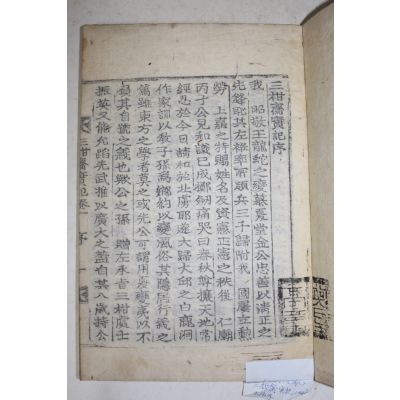 三柑齋實記序
我 昭敬王龍蛇之變慕夏堂金公忠善以淸正之
先鋒恥其左衽率所領兵三千歸附我 國屢立勳
勞 上嘉之特賜姓名及資憲正憲之秩後 仁廟
丙丁公見和議已成擲劒痛哭曰春秋尊攘天地常
經忍於今日請和於北虜耶遂大歸大邱之白鹿洞
作家訓以敎子孫爲鄕約以變風俗其隱居行義之
篤雖東方之學者莫之或先公可謂用夏變夷以不
負其自號之義也歟公之孫 贈左承旨三柑處士
振英又能允蹈先武推以廣大之蓋自其八歲持公
三柑齋實記卷一 序 一